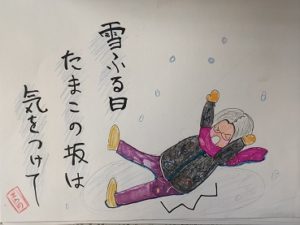 雪ふる日
たまこの坂は
気をつけて